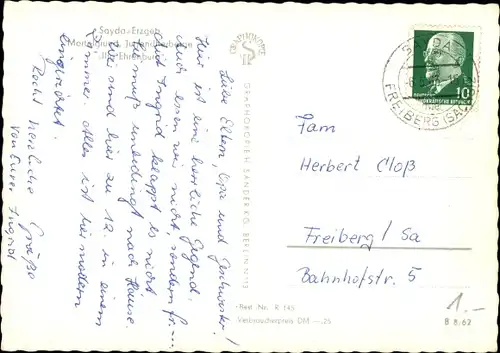 Sayda-Erzgeb.
Mortelgrund, Jugendherberge
„Ilja Ehrenburg“
Liebe Eltern, Opa und Geschwister!
Hier ist eine herrliche Gegend.
auch essen wir nicht, sondern
mit Ingrid klappt es nicht
muß unbedingt nach Hause
Wir sind hier zu 12. in einem
Zimmer. Alles ist hier modern
eingerichtet.
Recht herzliche Grüße
von Eurer Ingrid
GRAPHOKOPIE
GRAPHOKOPIE H. SANDER KG. BERLIN
Best.-Nr. R 145
Verbraucherpreis DM —,25
SAYDA
FREIBERG (SA)
10
DEUTSCHE
DEMOKRATISCHE REPUBLIK
Fam
Herbert Cloß
Freiberg / Sa
Bahnhofstr. 5
1.-
B 8/62